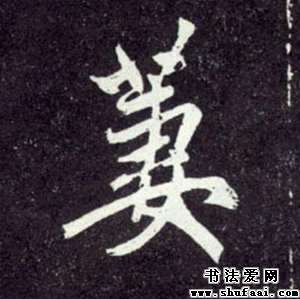 萋
书法爱网
www.shufaai.com